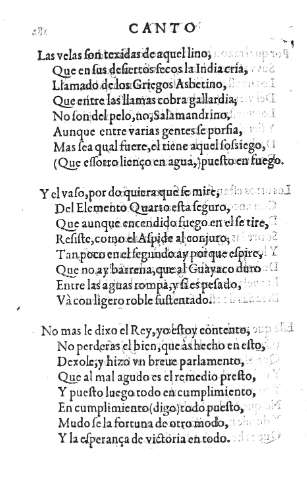 CANTO
Las velas son texidas de aquel lino,
Que en sus desiertos secos la India cria,
Llamado de los Griegos Asbetino,
Que entre las llamas cobra gallardia;
No son del pelo, no, Salamandrino,
Aunque entre varias gentes se porfia,
Mas sea qual fuere, el tiene aquel sossiego,
(Que essotro lienço en agua,) puesto en fuego.
Y el vaso, por do quiera que se mire,
Del Elemento Quarto esta seguro,
Que aunque encendido fuego en el se tire,
Resiste, como el Aspide al conjuro;
Tan poco en el segundo ay por que espire,
Que no ay barrena, que al Guayaco duro
Entre las aguas rompa, y si es pesado,
Và con ligero roble sustentado.
No mas le dixo el Rey, yo estoy contento,
No perderas el bien, que às hecho en esto,
Dexole, y hizo vn breue parlamento,
Que al mal agudo es el remedio presto,
Y puesto luego todo en cumplimiento,
En cumplimiento (digo) todo puesto,
Mudo se la fortuna de otro modo,
Y la esperança de victoria en todo.